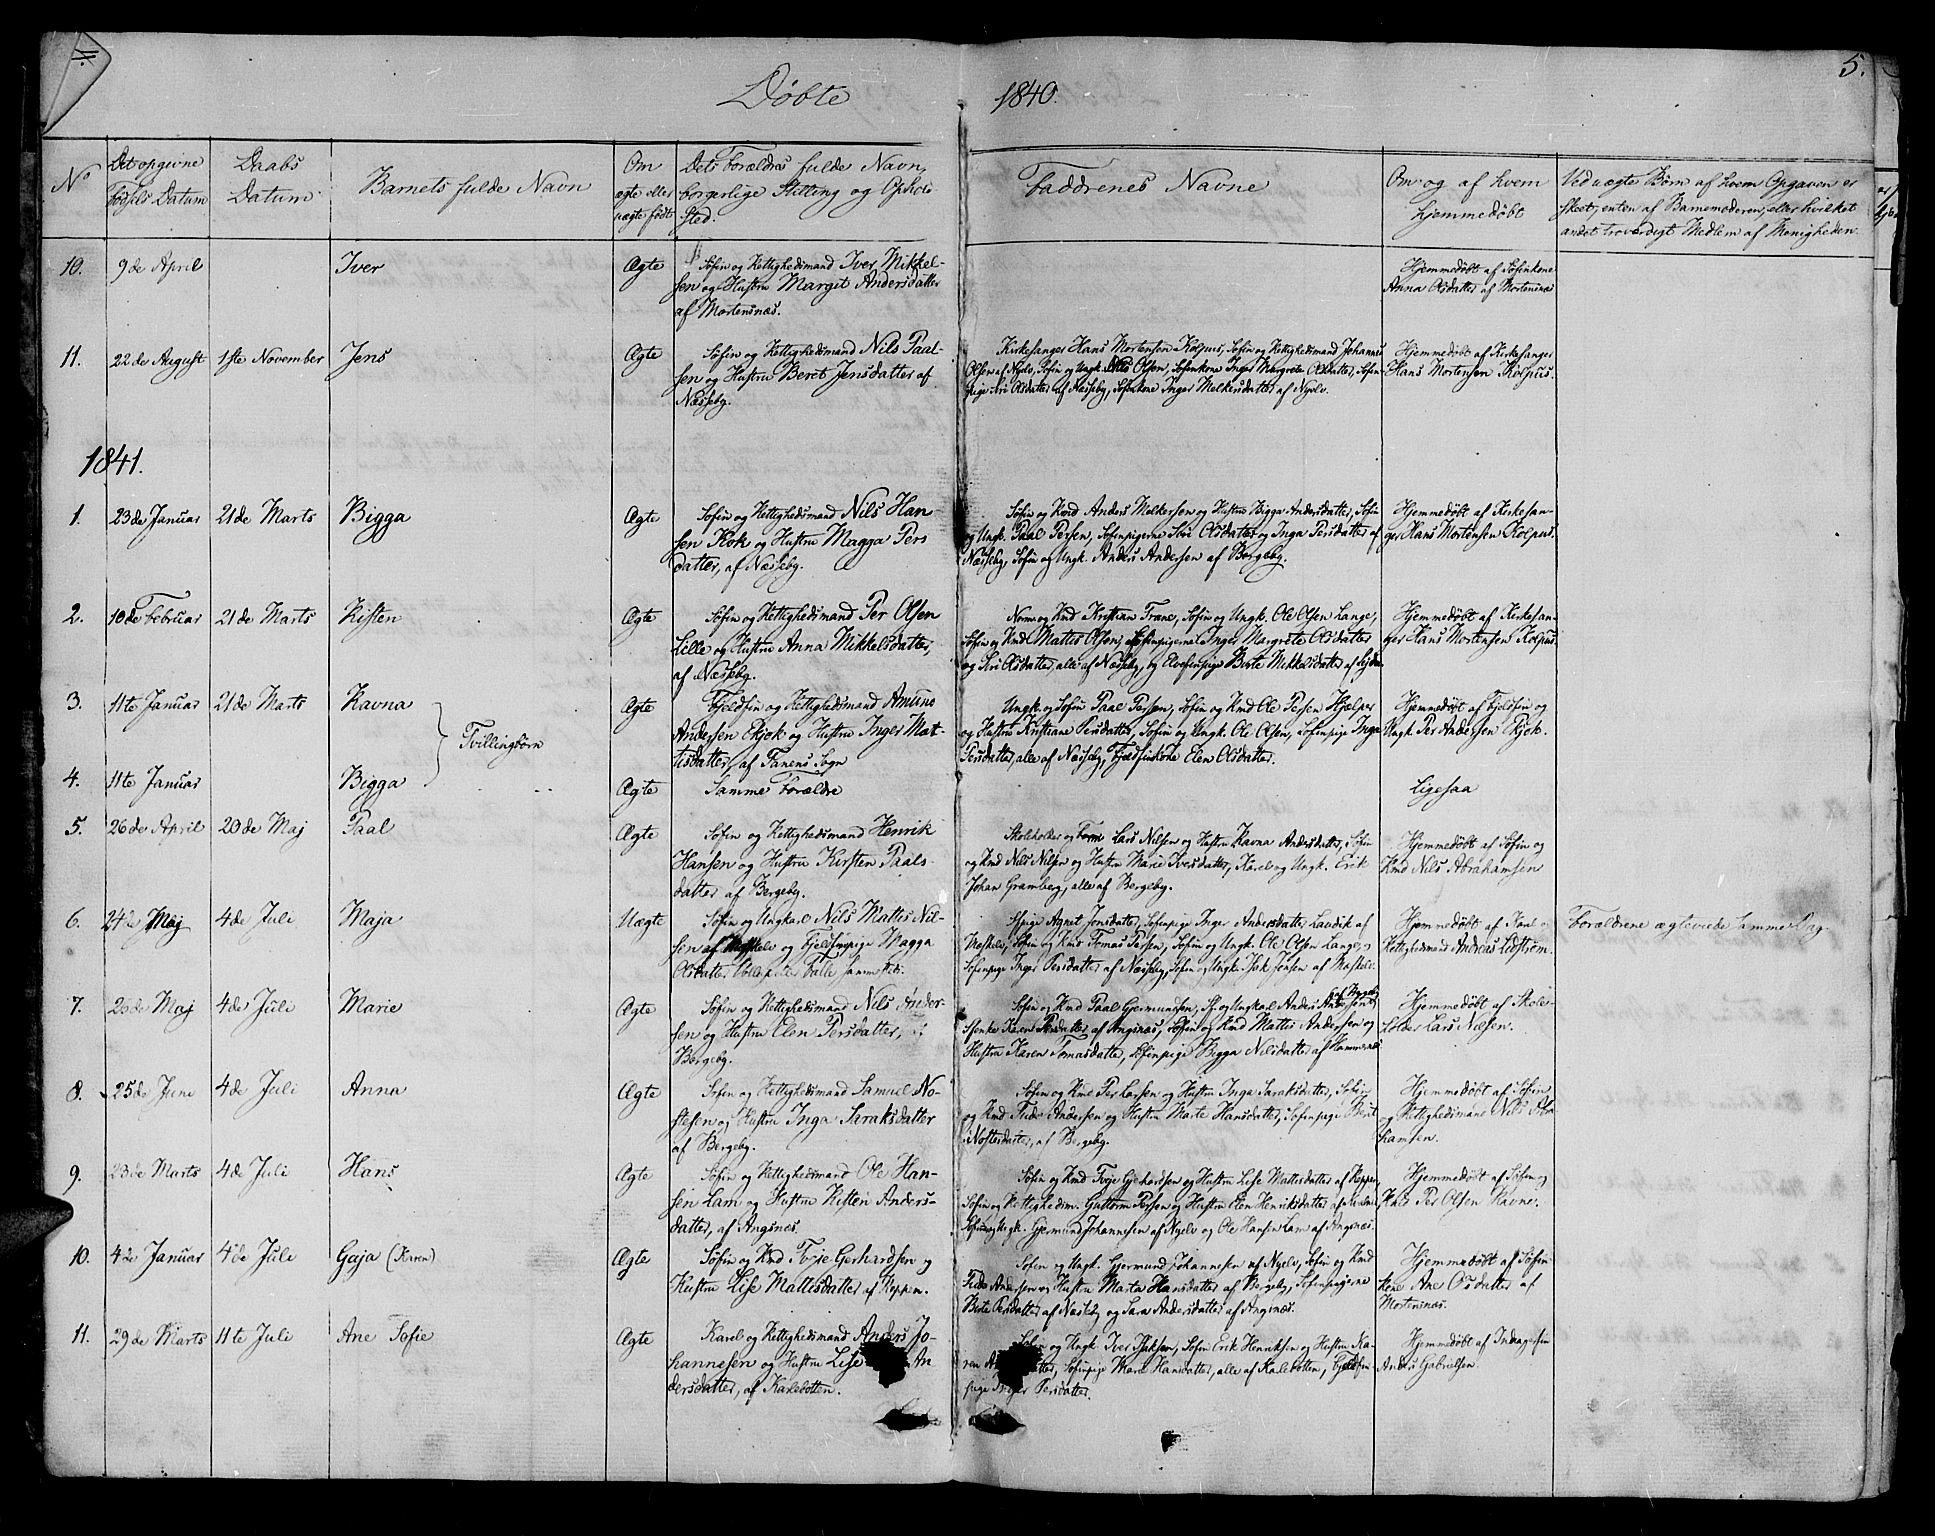 5.
Døbte 1840.
No
Det opgivne
Fødsels Datum
Daabs
Datum
Barnets fulde Navn
Om
ægte eller
uægte født
Dets Forældres fulde Navn,
borgerlige Stilling og Opholds
Sted.
Faddrenes Navne
Om og af hvem
hjemmedøbt
Ved uægte Børn af hvem Opgaven er
skeet, enten af Barnemoderen, eller hvilket
andet troværdigt Medlem af Menigheden.
10. 9de April Iver Ægte
Søfin og Rettighedsmand Iver Mikkel-
sen og Hustru Margit Andersdatter
af Mortensnæs.
Hjemmedøbt af Søfinkone
Anna Olsdatter af Mortensnæs
11. 22de August 1ste November Jens Ægte
Søfin og Rettighedsmand Nils Paal-
sen og Hustru Berit Jensdatter af
Næsseby.
Kirkesanger Hans Mortensen Kolpus, Søfin og Rettighedsmand Johannes
Olsen af Nyelv, Søfin og Ungk. Nils Olsen, Søfinkone Inger Margrete Olsdatter, Søfin-
pige Siri Olsdatter af Næsseby, Søfinkone Inger Melkersdatter af Nyelv.
Hjemmedøbt af Kirkesanger
Hans Mortensen Kolpus.
1841.
1. 23de Januar 21de Marts Bigga Ægte
Søfin og Rettighedsmand Nils Han-
sen Kok og Hustru Magga Pers
datter, af Næsseby.
Søfin og Rmd Anders Melkersen og Hustru Bigga Andersdatter, Søfin
og Ungk. Paal Persen, Søfinpigerne Siri Olsdatter og Inga Persdatter af
Næsseby, Søfin og Ungk. Anders Andersen af Bergeby.
Hjemmedøbt af Kirkesan-
ger Hans Mortensen Kolpus.
2. 10de Februar 21de Marts Kisten Ægte
Søfin og Rettighedsmand Per Olsen
Lille og Hustru Anna Mikkelsdatter,
af Næsseby.
Norm. og Rmd Kristian Trane, Søfin og Ungk. Ole Olsen Lange,
Søfin og Rmd Mattis Olsen, Søfinpigerne Inger Margrete Olsdatter
og Siri Olsdatter, alle af Næsseby, og Elvefinpige Berte Mikkelsdatter af
Hjemmedøbt af Kirkesan-
ger Hans Mortensen Kolpus
3. 11te Januar 21de Marts Ravna Ægte
Tvillingbørn
Fjeldfin og Rettighedsmand Amund
Andersen Ekjok og Hustru Inger Mat-
tisdatter, af Tanens Sogn
Ungk. og Søfin Paal Persen, Søfin og Rmd Ole Persen Hjælper
og Hustru Kristiane Persdatter, Søfin og Ungk. Ole Olsen, Søfinpige Inga
Persdatter, alle af Næsseby, Fjeldfinkone Elen Olsdatter.
Hjemmedøbt af Fjeldfin og
Ungk. Per Andersen Ekjok.
4. 11te Januar Bigga Ægte
Samme Forældre
Ligesaa
5. 26de April 20de Maj Paal Ægte
Søfin og Rettighedsmand Henrik
Hansen og Hustru Kirsten Paals
datter af Bergeby.
Skoleholder og Lars Nilsen og Hustru Ravna Andersdatter, Søfin
og Rmd Nils Nilsen og Hustru Marie Iversdatter, Karel og Ungk. Erik
Johan Gramberg, alle af Bergeby.
Hjemmedøbt af Søfin og
Rmd Nils Abrahamsen
6. 24de Maj 4de Juli Maja Uægte
Søfin og Ungkarl Nils Mattis Nil-
sen af og Fjeldfinpige Magga
Olsdatter
Spige Agnet Jonsdatter, Søfinpige Inger Andersdatter Laudik af
Næskelv, Søfin og Rmd Tomas Persen, Søfin og Ungk. Ole Olsen Lange,
Søfinpige Inger Persdatter, af Næsseby, Søfin og Ungk. Isak Jonsen af Næskelv.
Hjemmedøbt af
Rettighedsmand Andreas Lidstrøm.
Forældrene ægteviede samme Dag.
7. 20de Maj 4de Juli Marie Ægte
Søfin og Rettighedsmand Nils Ander-
sen og Hustru Elen Persdatter,
Bergeby.
Søfin og Rmd Paal Gjermundsen, Sf. og Ungkarl Anders
Sfenke Karen Persdatter af Angsnæs, Søfin og Rmd Mattis Andersen og
Hustru Karen Tomasdatter, Søfinpige Bigga Nilsdatter af Hammernæs
Hjemmedøbt af Skole-
holder Lars Nilsen.
8. 25de Juni 4de Juli Anna Ægte
Søfin og Rettighedsmand Samuel No-
stesen og Hustru Inga Saraksdatter
af Bergeby.
Søfin og Rmd Per Larsen og Hustru Inga Saraksdatter, Søfin
og Rmd Fide Andersen og Hustru Marte Hansdatter, Søfinpige Berit
Nostesdatter, af Bergeby.
Hjemmedøbt af Søfin
og Rettighedsmand Nils Abra
hamsen.
9. 23de Marts 4de Juli Hans Ægte
Søfin og Rettighedsmand Ole Han-
sen Lam og Hustru Kisten Anders-
datter, af Angsnæs.
Søfin og Rmd Tvje Gjerhardsen og Hustru Lise Mattisdatter af Reppen,
Søfin og Rettighedsm. Guttorm Persen og Hustru Elen Henriksdatter af
Søfin og Ungk. Gjermund Johannesen af Nyelv og Ole Hansen Lam af Angsnæs.
Hjemmedøbt af Søfin og
Per Olsen Ravne.
10. 4de Januar 4de Juli Gaja (Karen) Ægte
Søfin og Rmd Tvje Gerhardsen og
Hustru Lise Mattisdatter af Reppen.
Søfin og Ungk. Gjermund Johannesen af Nyelv, Søfin og Rmd
Fide Andersen og Hustru Marta Hansdatter af Bergeby, Søfinpigerne
Berte Persdatter af Næsseby og Sara Andersdatter af Angsnæs.
Hjemmedøbt af Søfin-
kone Ane Olsdatter af
Mortensnæs.
11. 29de Marts 11te Juli Ane Sofie Ægte
Karel og Rettighedsmand Anders Jo-
hannesen og Hustru Lise An
dersdatter, af Karlebotten.
Søfin og Ungk Iver Isaksen, Søfin Erik Henriksen og Hustru Ka-
ren Søfinpige Marit Hansdatter, alle af Karlebotten, Fjeldfin-
pige Inger Persdatter.
Hjemmedøbt af
Anders Gabrielsen.